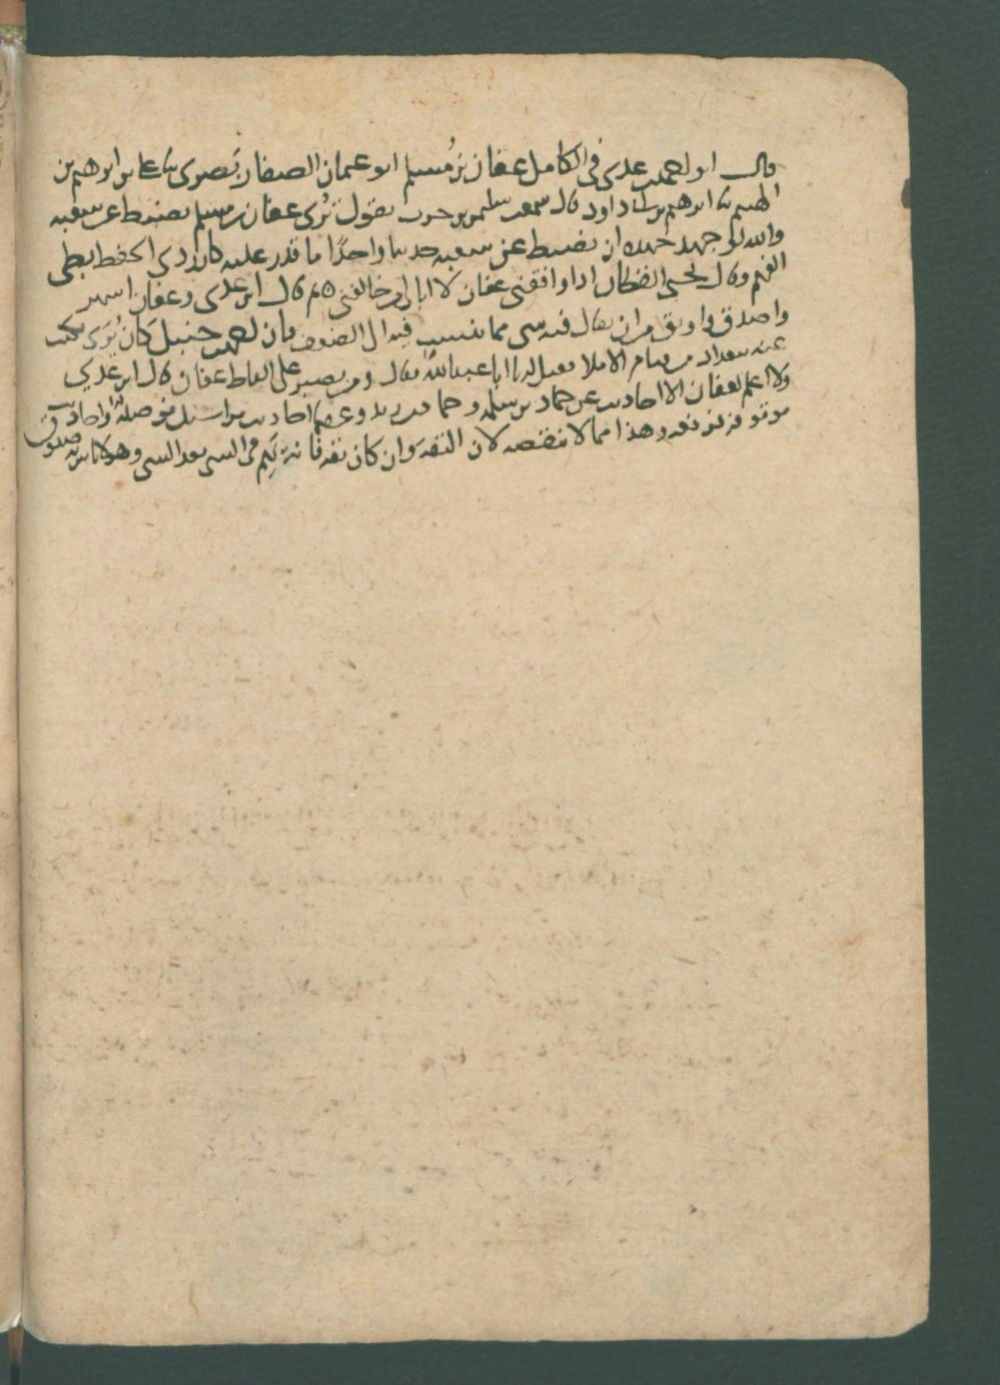 قال ابو احمد بن عدي في الكامل عفان بن مسلم ابو عثمان الصفار بصري ثنا علي بن ابرهيم بن
الهيثم ثنا ابرهيم بن داود قال سمعت سليمن بن حرب يقول ترى عفان بن مسلم يضبط عن شعبه
والله لو جهد جهده ان يضبط عن شعبه حديثا واحدا ما قدر عليه كان ردي الحفظ بطي
الفهم وقال يحيى القطان اذا وافقني عفان لا ابالي من خالفني قال ابن عدي وعفان اشهر
واصدق واوثق من ان يقال فيه شي مما ينسب فيه الى الضعف فان احمد بن حنبل كان يرى يكتب
عنه ببغداد من قيام الاملا فقيل له يا ابا عبد الله فقال ومن يصبر على الفاظ عفان قال ابن عدي
ولا اعلم لعفان الا احاديث عن حماد بن سلمه وحماد بن زيد وغيرهما احاديث مراسيل فوصلها واحاديث
موقوفه فرفعه وهذا مما لا ينقصه لان الثقه وان كان ثقه فانه يهم في الشي بعد الشي وهو لا باس به صدوق